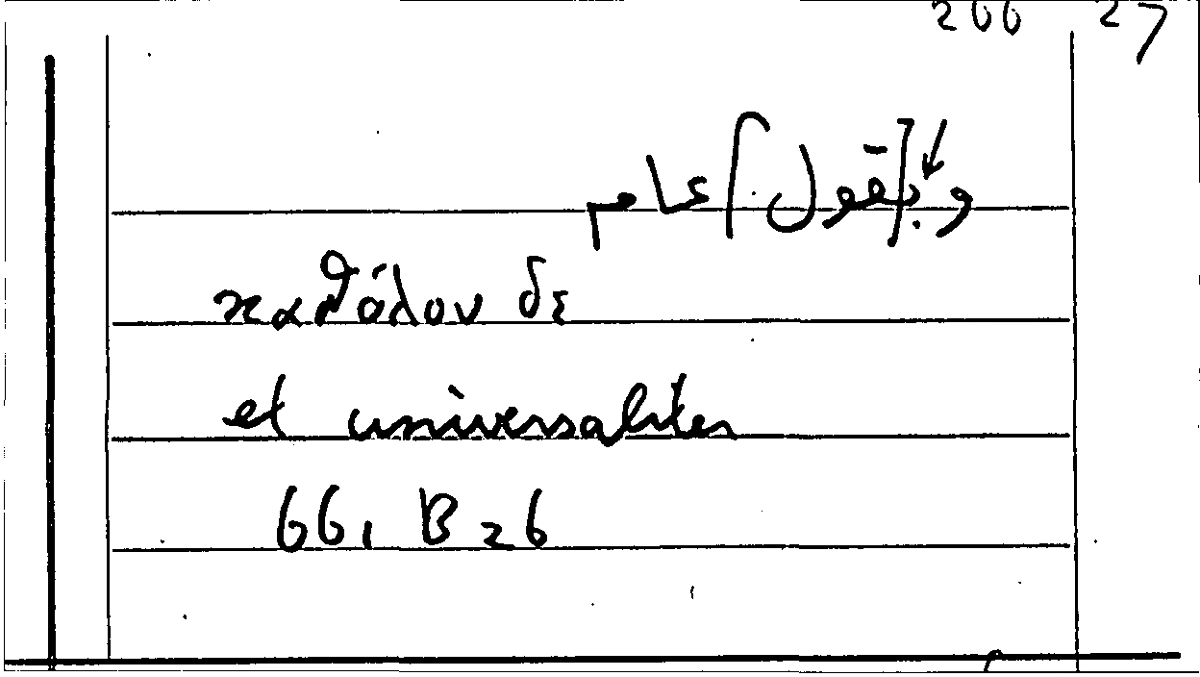 200 27
و[بقول] عام
καθόλου δε
et universaliter
661 B 26